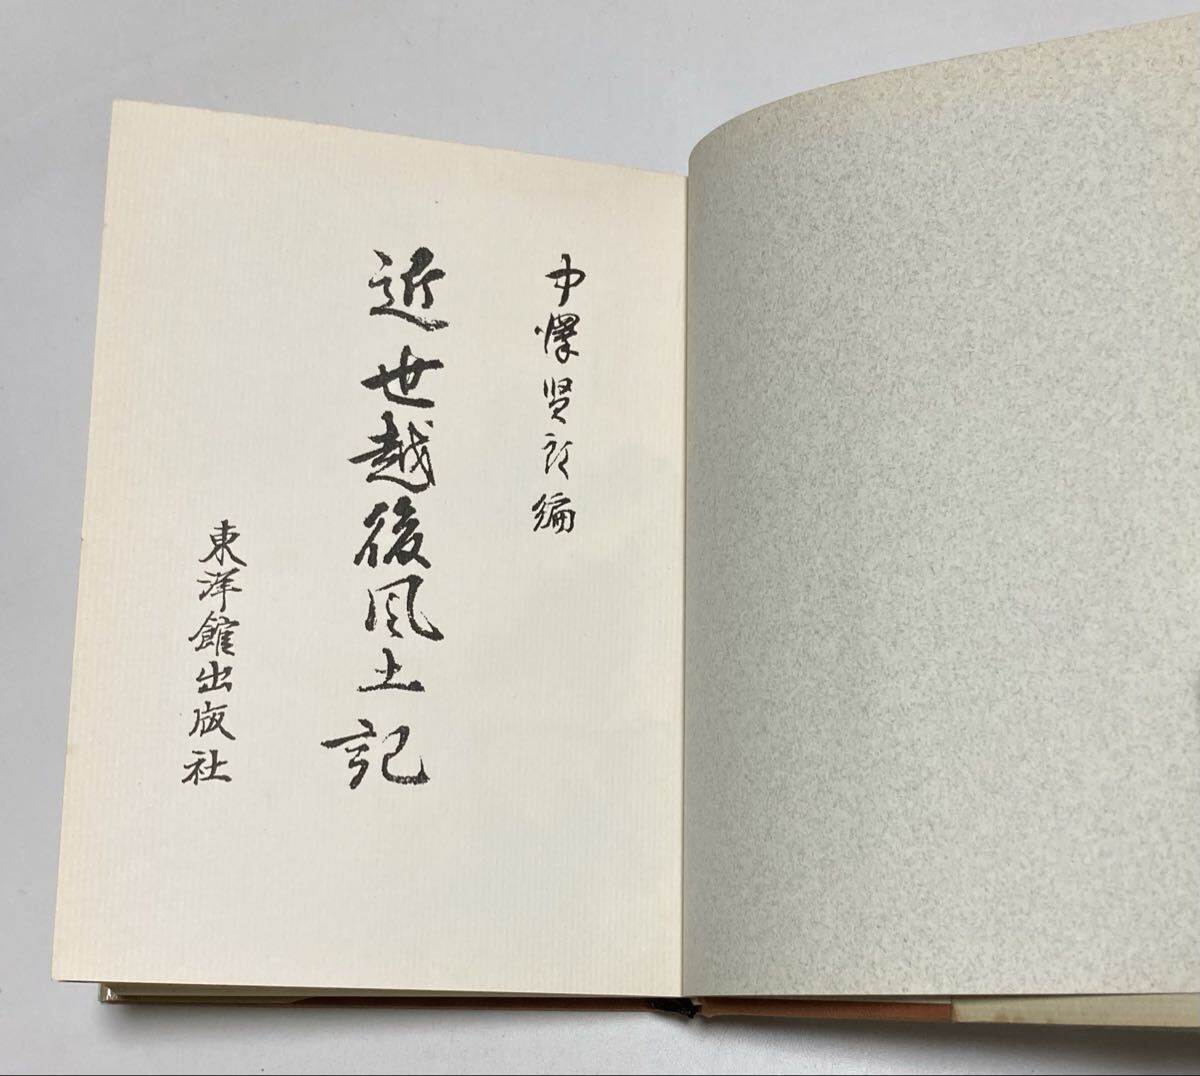 中澤賢郎編
近世越後風土記
東洋館出版社